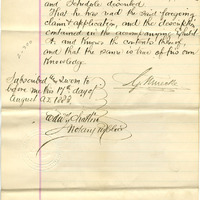 and Schedule described
That he has read the said foregoing
claim & application, and the description
contained in the accompanying Exhibit
A. and knows the contents thereof,
and that the same is true of his own
Knowledge.
Subscribed & Sworn to
before me this 17th day of
August A.D. 1888.
Notary Public